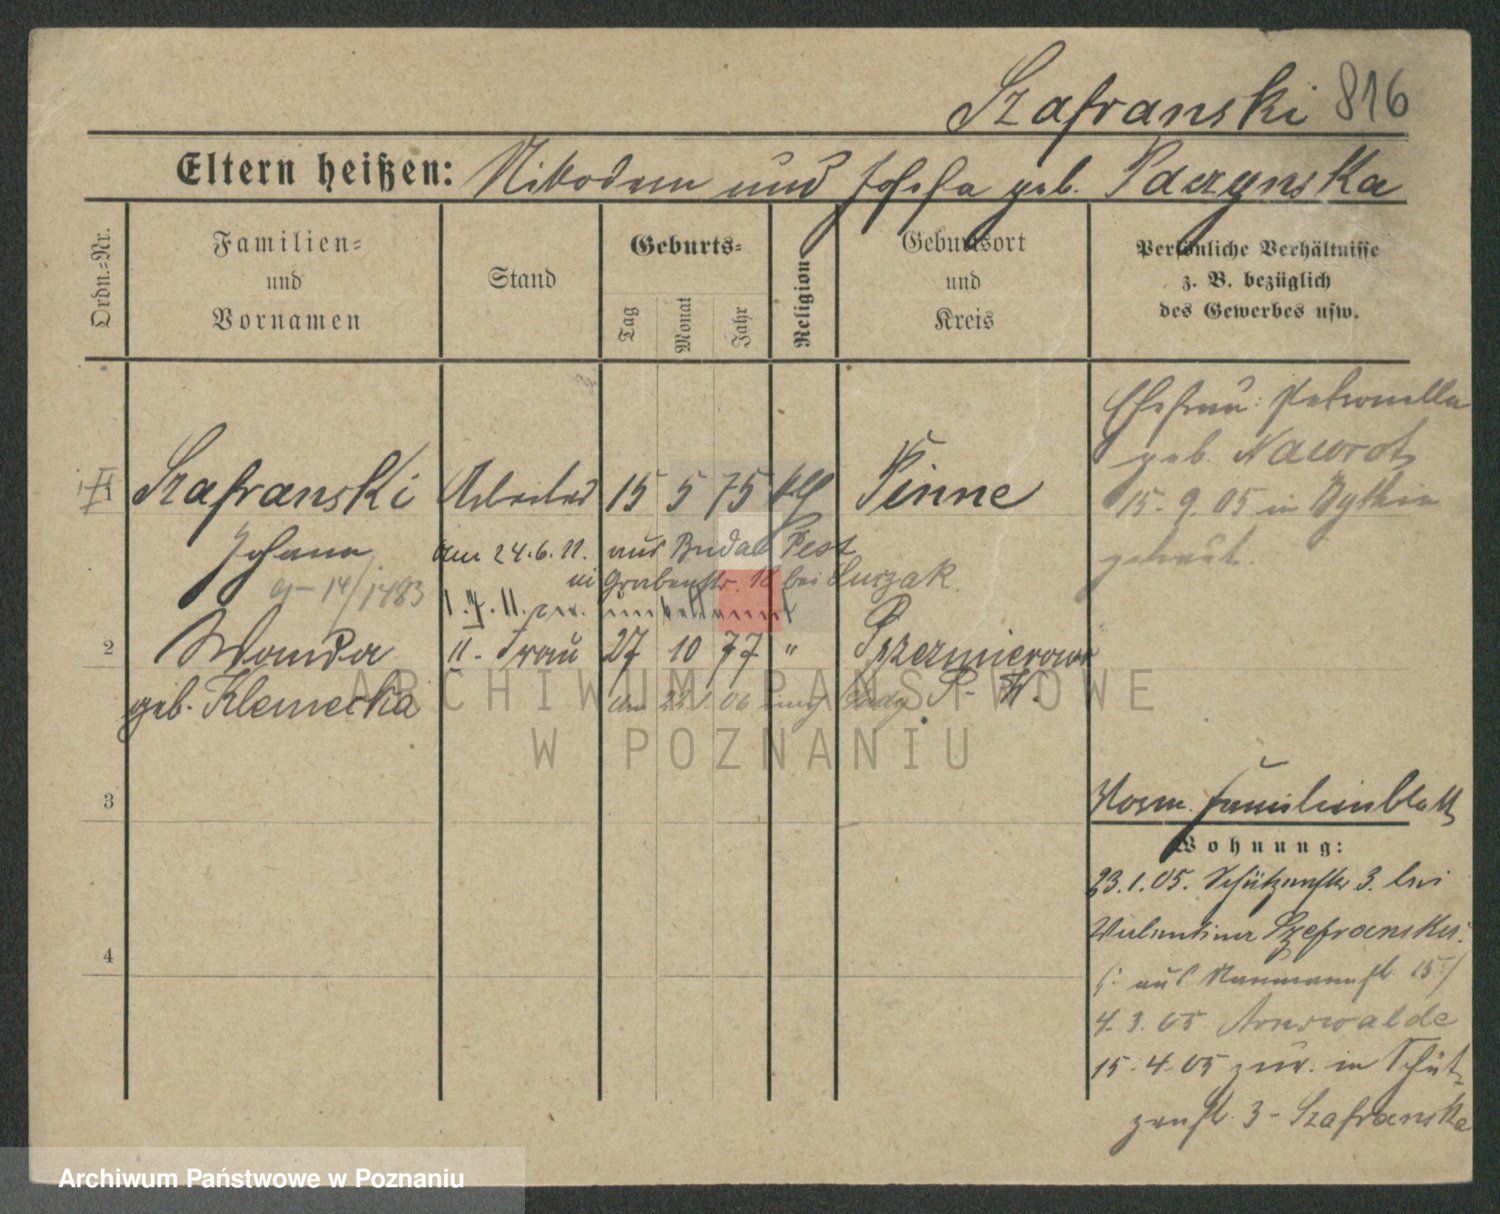 Szafranski 816
Eltern heißen: Nikodem und Josefa geb. Paczynska
Ordn.-Nr.
Familien- und Vornamen
Stand
Geburts-
Tag
Monat
Jahr
Religion
Geburtsort und Kreis
Persönliche Verhältnisse z. B. bezüglich des Gewerbes usw.
Ehefrau: Petronella
geb. Nawrot
15. 9. 05 in Bythin
getraut.
1 Szafranski Arbeiter 15 5 75 kth Pinne
Johann am 24.6.11. aus Buda Pest
14/1483 in Grabenstr. 18 bei Curzak
1. 7. 11. unbekannt
2 Wanda II. Frau 27 10 77 " Przezmierowo
geb. Klemecka 22.1.06 P. W.
3
4
Vorm. Familienblatt
Wohnung:
23.1.05. Schützenstr 3. bei
Valentina Szafranski.
(: aus Naumannstr 15/
4. 3. 05 Arnswalde
15. 4. 05 zur. in Schüt-
zenstr. 3 - Szafranska
ARCHIWUM PAŃSTWOWE
W POZNANIU
Archiwum Państwowe w Poznaniu